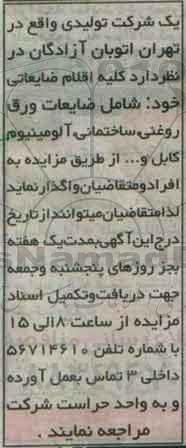 یک شرکت تولیدی واقع در
تهران اتوبان آزادگان در
نظر دارد کلیه اقلام ضایعاتی
خود: شامل ضایعات ورق
روغنی، ساختمانی، آلومینیوم
کابل و... از طریق مزایده به
افراد و متقاضیان واگذار نماید
لذا متقاضیان میتوانند از تاریخ
درج این آگهی بمدت یک هفته
بجز روزهای پنجشنبه وجمعه
جهت دریافت وتکمیل اسناد
مزایده از ساعت ۸ الی ۱۵
با شماره تلفن ۵۶۷۱۴۶۱۰
داخلی ۳ تماس بعمل آورده
و به واحد حراست شرکت
مراجعه نمایند .